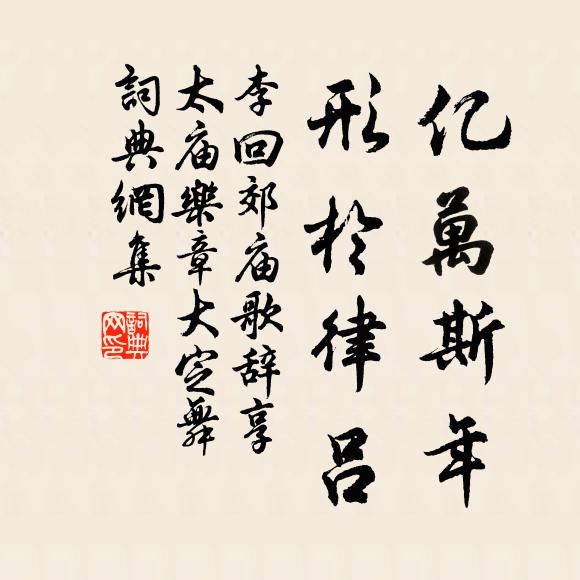 亿萬斯年
形於律吕
李回郊庙歌辞享
太庙樂章大定舞
詞典網集
詞典网印